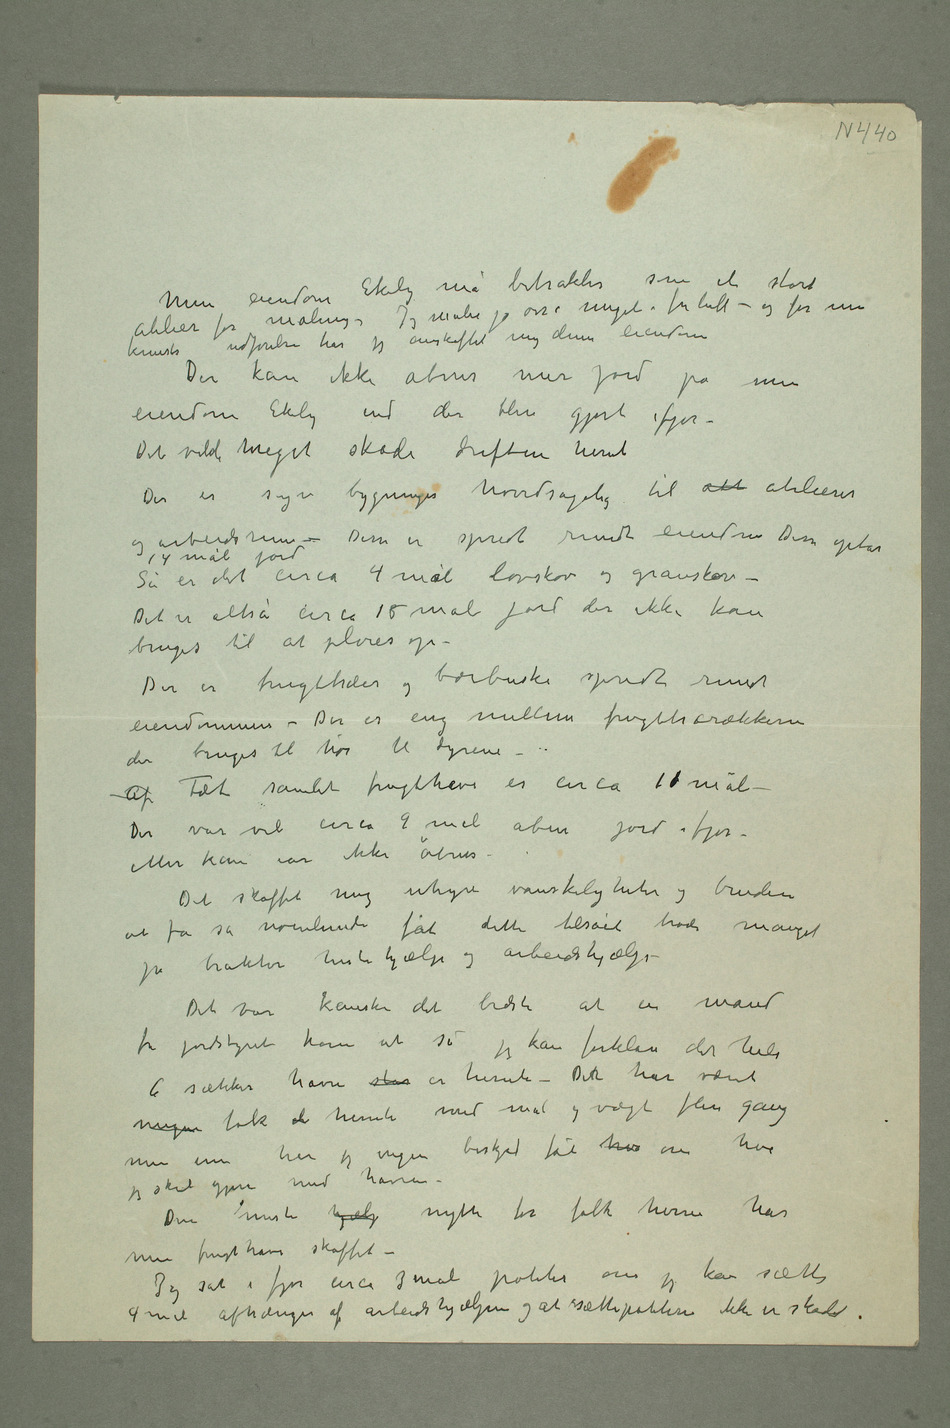 N440
Min eiendom Ekely må betraktes som et stort
atelier for maling. Jeg maler jo også meget i friluft – og for min
kunsts udførelse har jeg anskaffet mig denne eiendom
Der kan ikke åbnes mer jord på min
eiendom Ekely end der blev gjort ifjor –
Det vilde meget skade driften herved
Der er syv bygninger hovedsagelig til att atelierer
og arbeidsrum – Disse er spredt rundt eiendom Disse optar
14 mål jord
Så er det circa 4 mål løvskov og granskov –
Det er altså circa 18 mål jord der ikke kan
bruges til at pløies op –
Der er frugttræer og bærbuske spredt rundt
eiendommen – Der er eng mellem frugttrærækkerne
der bruges til hø til dyrene –
Af Tæt samlet frugthave er circa 11 mål –
Der var vel circa 9 mål åben jord ifjor –
Mer kan iår ikke åbnes –
Det skaffet mig uhyre vanskeligheter og bryderi
at få så noenlunde fåt dette tilsået trods manget
på traktor hestehjælp og arbeidshjælp –
Det var kanske det bedste at en mand
fra jordstyret kom at så jeg kan forklare det hele
6 sækker havre står er hernede – Det har været
mange folk de hernede med mål og vægt flere gang
men enn har jeg ingen beskjed fåt hva om hva
jeg skal gjøre med havren –
Den meste hjælp nytte for folk herne har
min frugthave skaffet –
Jeg sat i fjor circa 3 mål poteter om jeg kan sætte
4 mål afhænger af arbeidshjælpen og at sættepoteterne ikke er skadet.